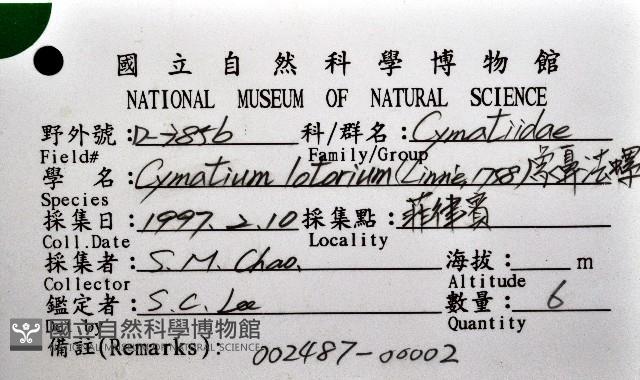 國立自然科學博物館
NATIONAL MUSEUM OF NATURAL SCIENCE
野外號:D-7856 科/群名:Cymatiidae
Field# Family/Group
學 名:Cymatium lotorium (Linné, 1758) 象鼻法螺
Species
採集日:1997.2.10 採集點:菲律賓
Coll.Date Locality
採集者:S.M. Chao. 海拔: m
Collector Altitude
鑑定者:S.C. Lee 數量: 6
Det.by Quantity
國立自然科學博物館
NATIONAL MUSEUM OF NATURAL SCIENCE
備註(Remarks): 002487-00002